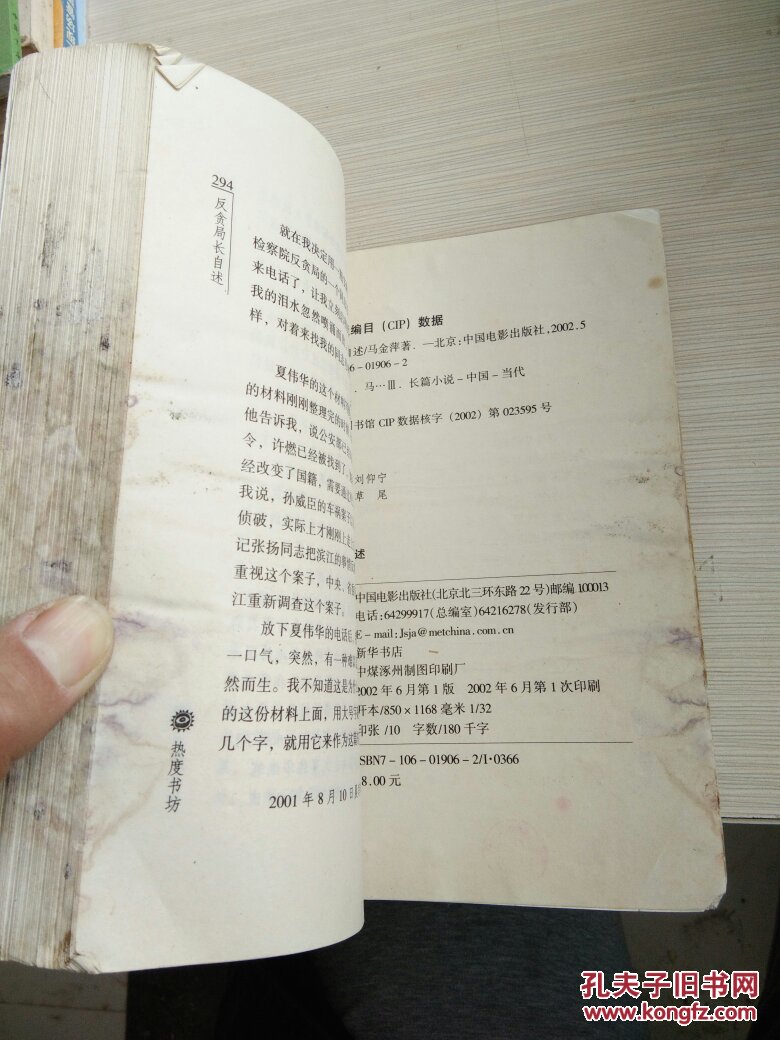 294
反贪局长自述
就在我决定用一
检察院反贪局的一个
来电话了，让我立刻
我的泪水忽然喷涌而
样，对着来找我的同
夏伟华的这个材料
的材料刚刚整理完的时
他告诉我，说公安部已
令，许燃已经被找到了
经改变了国籍，需要通
我说，孙威臣的车祸案子
侦破，实际上才刚刚上
记张扬同志把滨江的事情
重视这个案子，中央、省
江重新调查这个案子。
放下夏伟华的电话后
一口气，突然，有一种难
然而生。我不知道这是为什
的这份材料上面，用大号字
几个字，就用它来作为这篇
2001年8月10日
热度书坊
编目（CIP）数据
述/马金萍著．—北京：中国电影出版社，2002.5
6-01906-2
．马…Ⅲ．长篇小说－中国－当代
书馆 CIP 数据核字（2002）第 023595 号
刘仰宁
草　尾
述
中国电影出版社(北京北三环东路 22 号)邮编 100013
电话：64299917（总编室）64216278（发行部）
E－mail:Jsja@metchina.com.cn
新华书店
中煤涿州制图印刷厂
2002 年 6 月第 1 版　2002 年 6 月第 1 次印刷
开本/850×1168 毫米 1/32
印张/10　字数/180 千字
ISBN7－106－01906－2/I·0366
8.00 元
孔夫子旧书网
www.kongfz.com